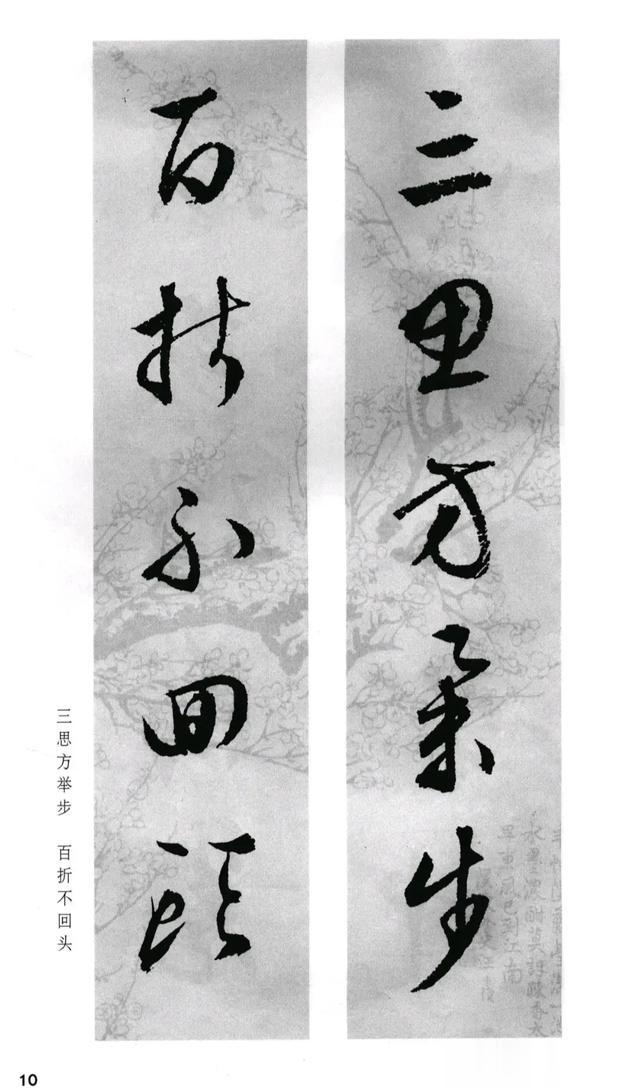 三思方举步
百折不回头
三思方举步 百折不回头
10